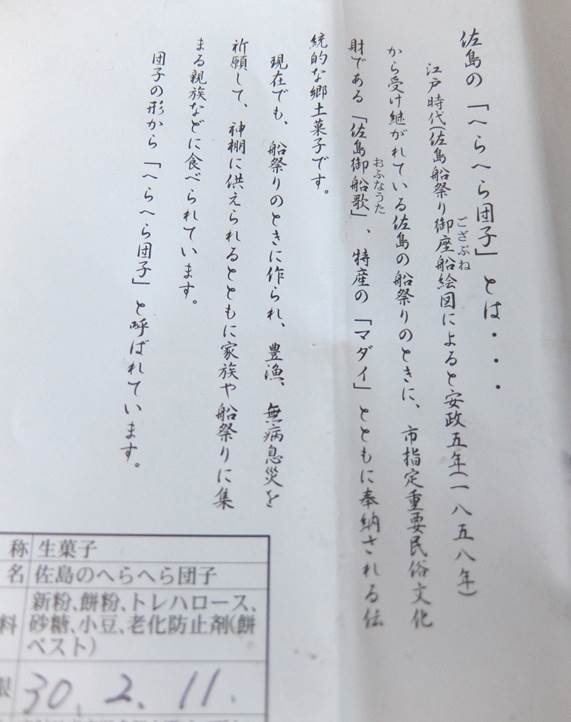 佐島の「へらへら団子」とは・・・
江戸時代(佐島船祭り御座船絵図によると安政五年(一八五八年)
ござぶね
から受け継がれている佐島の船祭りのときに、市指定重要民俗文化
財である「佐島御船歌」、特産の「マダイ」とともに奉納される伝
おふなうた
統的な郷土菓子です。
現在でも、船祭りのときに作られ、豊漁、無病息災を
祈願して、神棚に供えられるとともに家族や船祭りに集
まる親族などに食べられています。
団子の形から「へらへら団子」と呼ばれています。
称 生菓子
名 佐島のへらへら団子
料 新粉、餅粉、トレハロース、
砂糖、小豆、老化防止剤(餅
ベスト)
製 30.2.11.